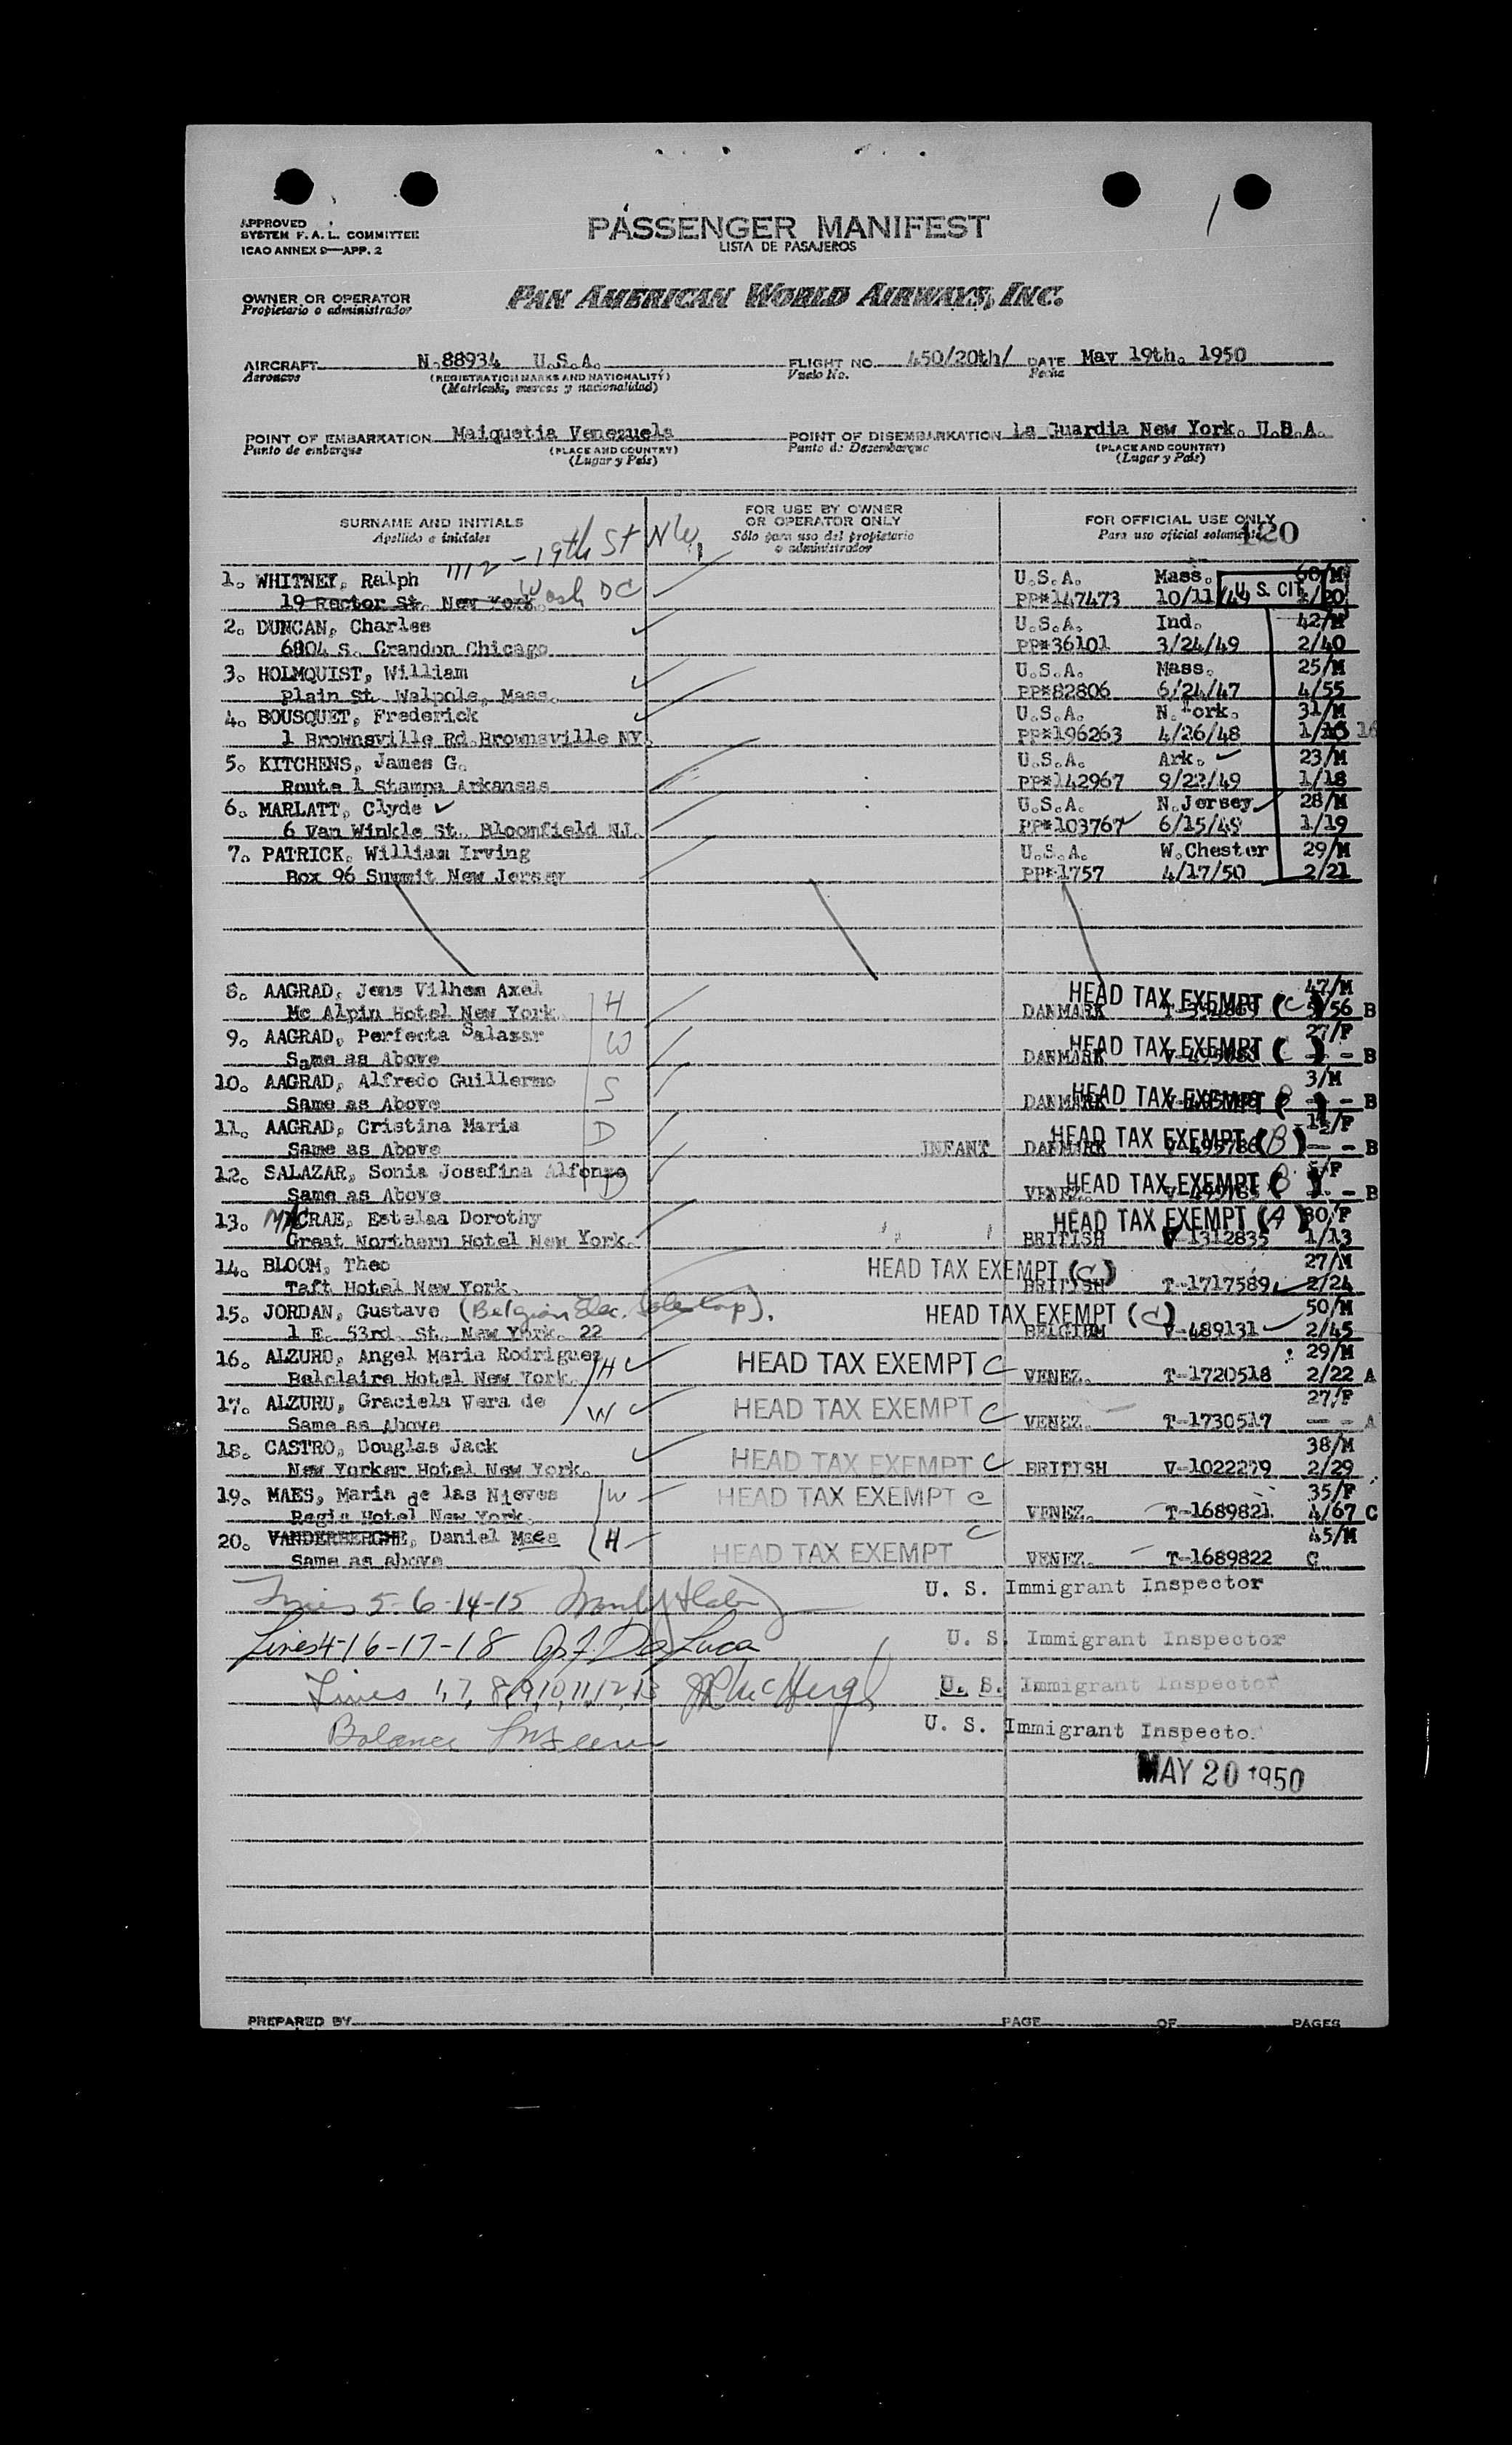 APPROVED
SYSTEM F. A. L. COMMITTEE
ICAO ANNEX 9—APP. 2
PASSENGER MANIFEST
LISTA DE PASAJEROS
OWNER OR OPERATOR
Propietario o administrador
PAN AMERICAN WORLD AIRWAYS, INC.
AIRCRAFT N.88934 U.S.A. FLIGHT NO. 450/20th/ DATE May 19th. 1950
Aeronave (REGISTRATION MARKS AND NATIONALITY) Vuelo No. Fecha
(Matricula, marcas y nacionalidad)
POINT OF EMBARKATION Maiquetia Venezuela POINT OF DISEMBARKATION La Guardia New York. U.S.A.
Punto de embarque (PLACE AND COUNTRY) Punto de Desembarque (PLACE AND COUNTRY)
(Lugar y País) (Lugar y País)
SURNAME AND INITIALS FOR USE BY OWNER OR OPERATOR ONLY FOR OFFICIAL USE ONLY
Apellido e iniciales Sólo para uso del propietario o administrador Para uso oficial solamente 120
1112 - 19th St NW,
1. WHITNEY, Ralph Wash DC U.S.A. Mass. 60/M
19 Rector St. New York PP#147473 10/11/49 U. S. CIT 1/20
2. DUNCAN, Charles U.S.A. Ind. 42/M
6804 S. Crandon Chicago PP#36101 3/24/49 2/40
3. HOLMQUIST, William U.S.A. Mass. 25/M
Plain St. Walpole, Mass. PP#82806 6/24/47 4/55
4. BOUSQUET, Frederick U.S.A. N.York. 31/M
1 Brownsville Rd.Brownsville NY. PP#196263 4/26/48 1/16 16
5. KITCHENS, James G. U.S.A. Ark. 23/M
Route 1 Stamps Arkansas PP#142967 9/22/49 1/18
6. MARLATT, Clyde U.S.A. N.Jersey 28/M
6 Van Winkle St. Bloomfield NJ. PP#103767 6/15/48 1/19
7. PATRICK, William Irving U.S.A. W.Chester 29/M
Box 96 Summit New Jersey PP#1757 4/17/50 2/21
8. AAGRAD, Jens Vilhem Axel H HEAD TAX EXEMPT (C) 47/M
Mc Alpin Hotel New York DANMARK 5/56 B
9. AAGRAD, Perfecta Salazar W HEAD TAX EXEMPT (C) 27/F
Same as Above DANMARK - - B
10. AAGRAD, Alfredo Guillermo S HEAD TAX EXEMPT (B) 3/M
Same as Above DANMARK - - B
11. AAGRAD, Cristina Maria D HEAD TAX EXEMPT (B)
Same as Above INFANT DANMARK V-495786 - - B
12. SALAZAR, Sonia Josefina Alfonzo D HEAD TAX EXEMPT (B)
Same as Above VENEZ. - - B
13. MACRAE, Estelaa Dorothy HEAD TAX EXEMPT (A) 30/F
Great Northern Hotel New York. BRITISH V-1312835 1/13
14. BLOOM, Theo HEAD TAX EXEMPT (C) 27/M
Taft Hotel New York. BRITISH T-1717589 2/24
15. JORDAN, Gustave (Belgian Elec. Sales Corp). HEAD TAX EXEMPT (C) 50/M
1 E. 53rd. St. New York. 22 BELGIUM V-489131 2/45
16. ALZURU, Angel Maria Rodriguez H HEAD TAX EXEMPT C 29/M
Belclaire Hotel New York. VENEZ. T-1720518 2/22 A
17. ALZURU, Graciela Vera de W HEAD TAX EXEMPT C 27/F
Same as Above VENEZ. T-1730517 - - A
18. CASTRO, Douglas Jack HEAD TAX EXEMPT C 38/M
New Yorker Hotel New York. BRITISH V-1022279 2/29
19. MAES, Maria de las Nieves W HEAD TAX EXEMPT C 35/F
Regis Hotel New York. VENEZ. T-1689821 4/67 C
20. VANDERBERGHE, Daniel Maes H HEAD TAX EXEMPT C 45/M
Same as above VENEZ. T-1689822 C
Lines 5-6-14-15 U. S. Immigrant Inspector
Lines 4-16-17-18 Jos. F. De Luca U. S. Immigrant Inspector
Lines 1,7,8,9,10,11,12,13 U. S. Immigrant Inspector
Balance U. S. Immigrant Inspecto.
MAY 20 1950
PREPARED BY PAGE OF PAGES